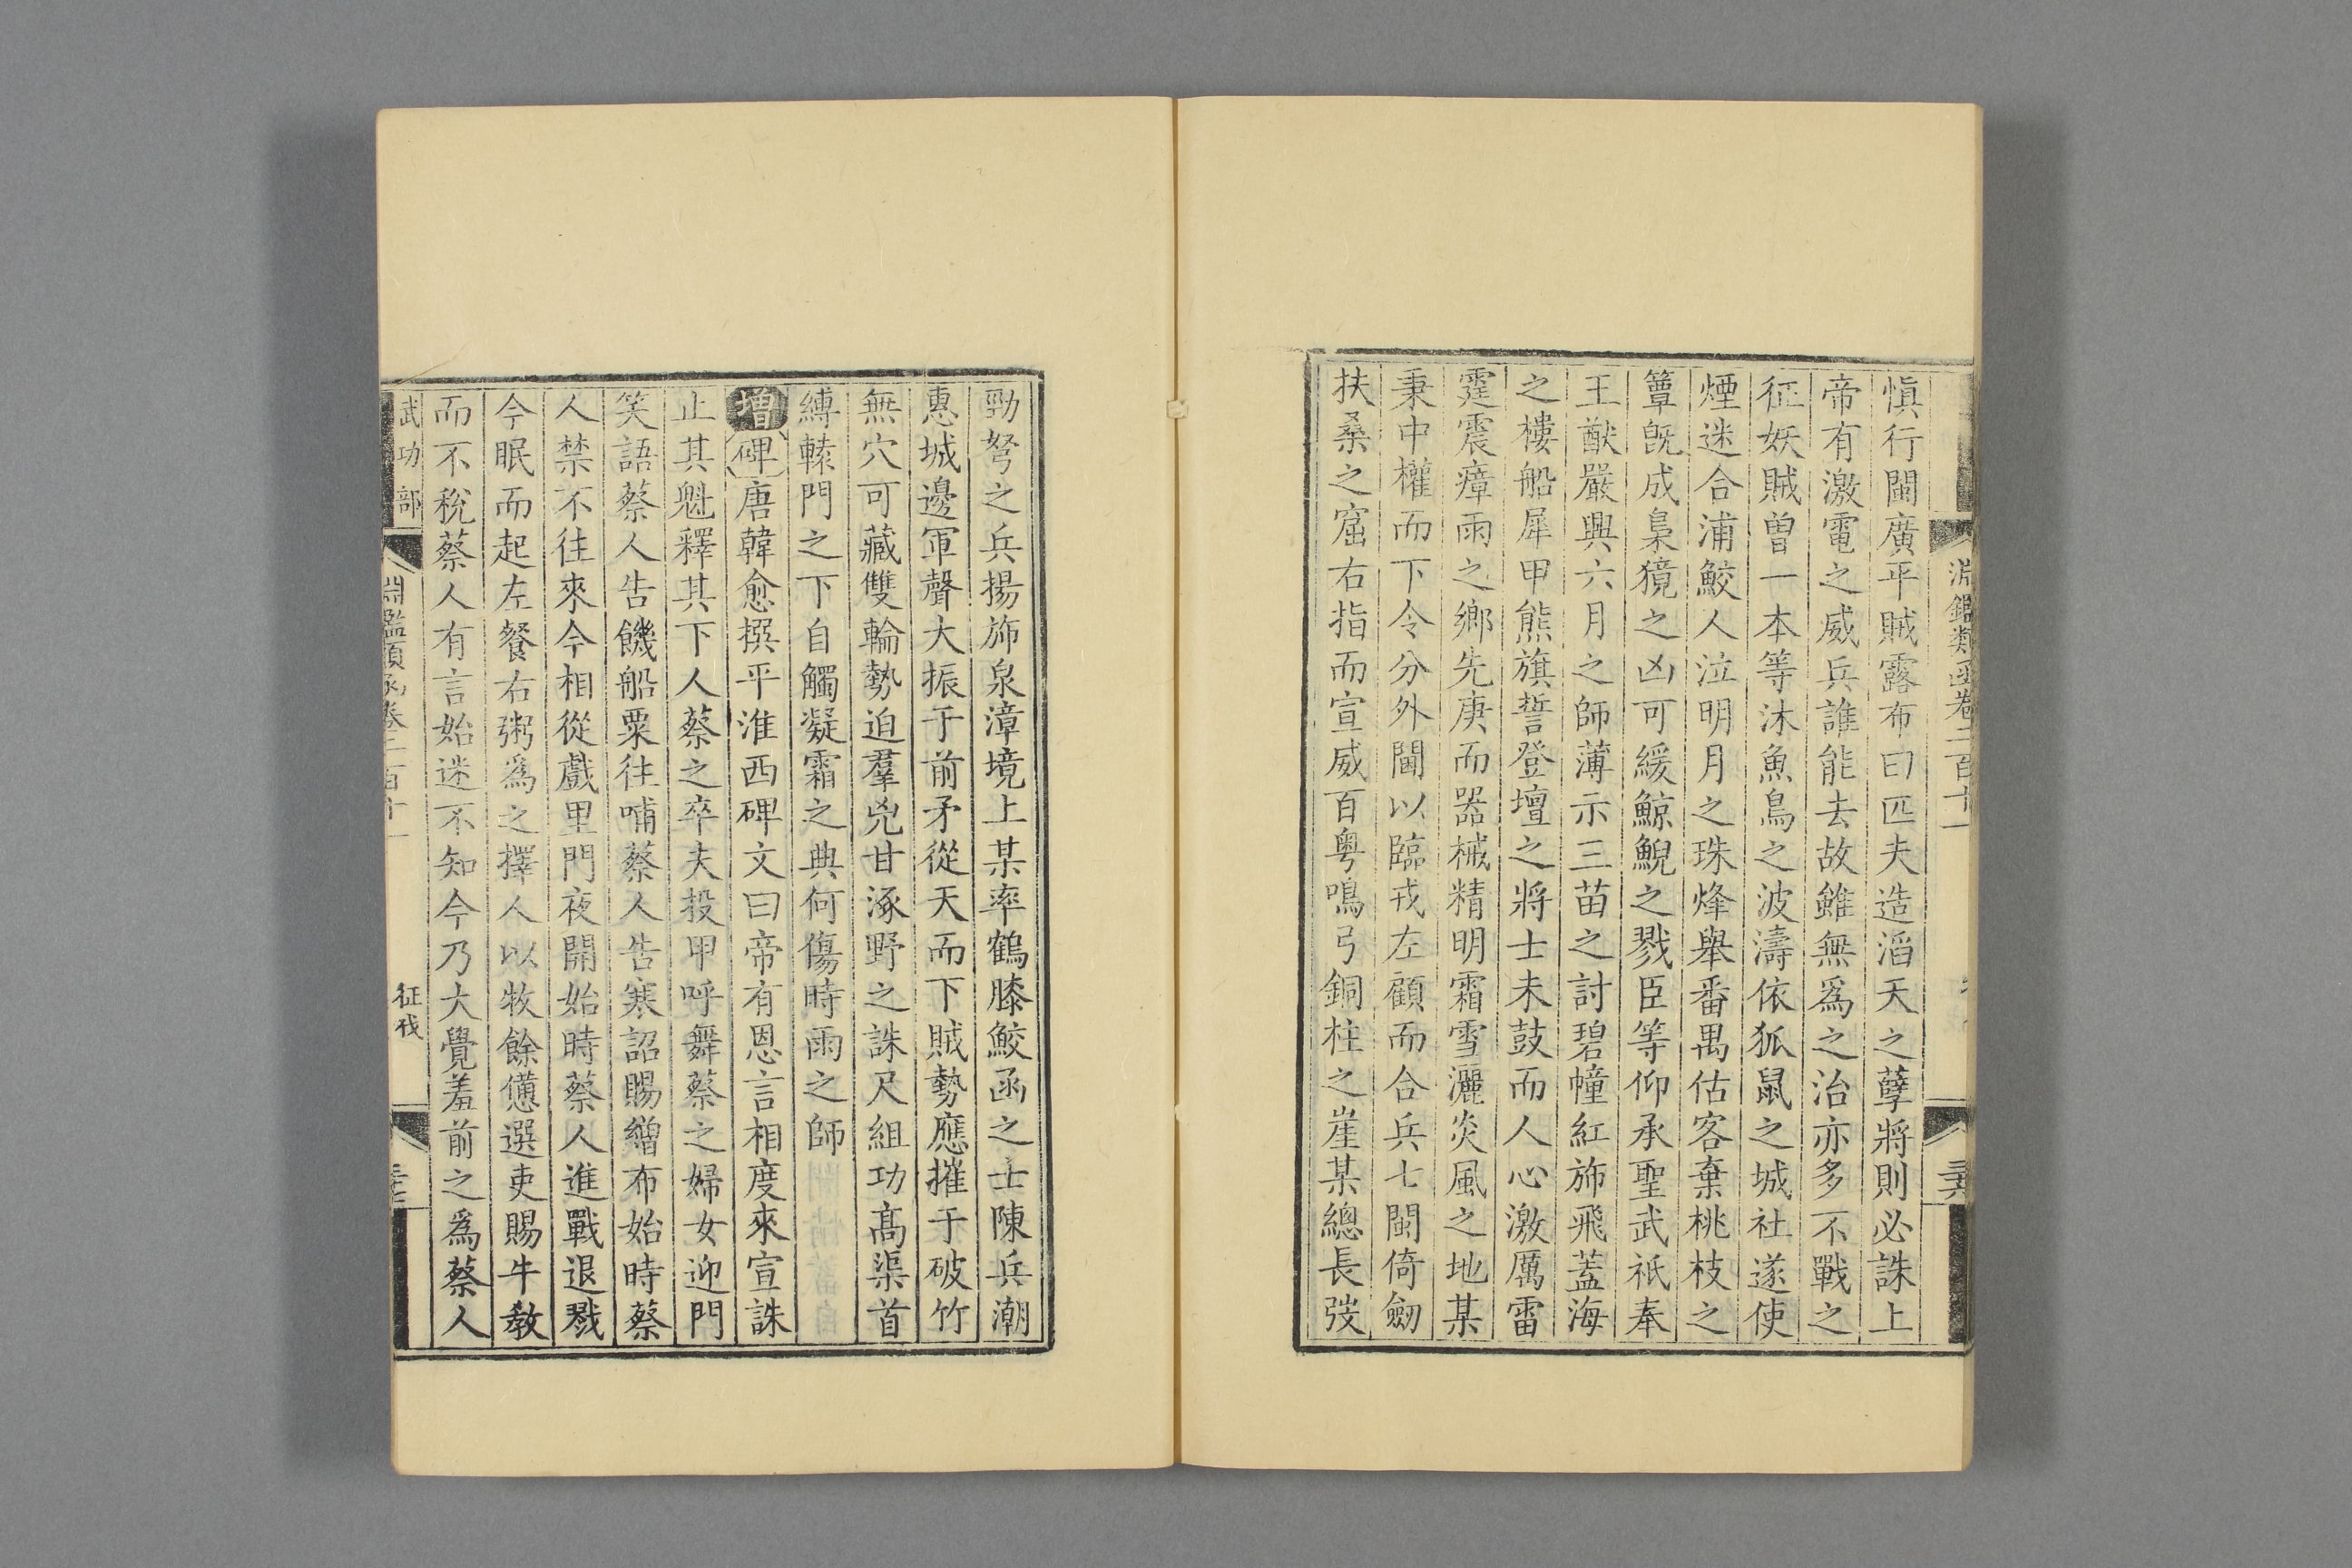 淵鑑類函卷二百十一
慎行閩廣平賊露布曰匹夫造滔天之孽將則必誅上
帝有激電之威兵誰能去故雖無爲之治亦多不戰之
征妖賊曾一本等沐魚鳥之波濤依狐鼠之城社遂使
煙迷合浦鮫人泣明月之珠烽舉番禺估客棄桃枝之
簟旣成梟獍之凶可緩鯨鯢之戮臣等仰承聖武祇奉
王猷嚴興六月之師薄示三苗之討碧幢紅斾飛蓋海
之樓船犀甲熊旗誓登壇之將士未鼓而人心激厲雷
霆震瘴雨之鄉先庚而器械精明霜雪灑炎風之地某
秉中權而下令分外閫以臨戎左顧而合兵七閩倚劒
扶桑之窟右指而宣威百粤鳴弓銅柱之崖某總長弢
勁弩之兵揚斾泉漳境上某率鶴膝鮫函之士陳兵潮
惠城邊軍聲大振于前矛從天而下賊勢應摧于破竹
無穴可藏雙輪勢迫羣兇甘涿野之誅尺組功高渠首
縛轅門之下自觸凝霜之典何傷時雨之師
增碑唐韓愈撰平淮西碑文曰帝有恩言相度來宣誅
止其魁釋其下人蔡之卒夫投甲呼舞蔡之婦女迎門
笑語蔡人告饑船粟往哺蔡人告寒詔賜繒布始時蔡
人禁不往來今相從戲里門夜開始時蔡人進戰退戮
今眠而起左餐右粥爲之擇人以牧餘憊選吏賜牛敎
而不稅蔡人有言始迷不知今乃大覺羞前之爲蔡人
武功部
淵鑑類函卷二百十一
征伐